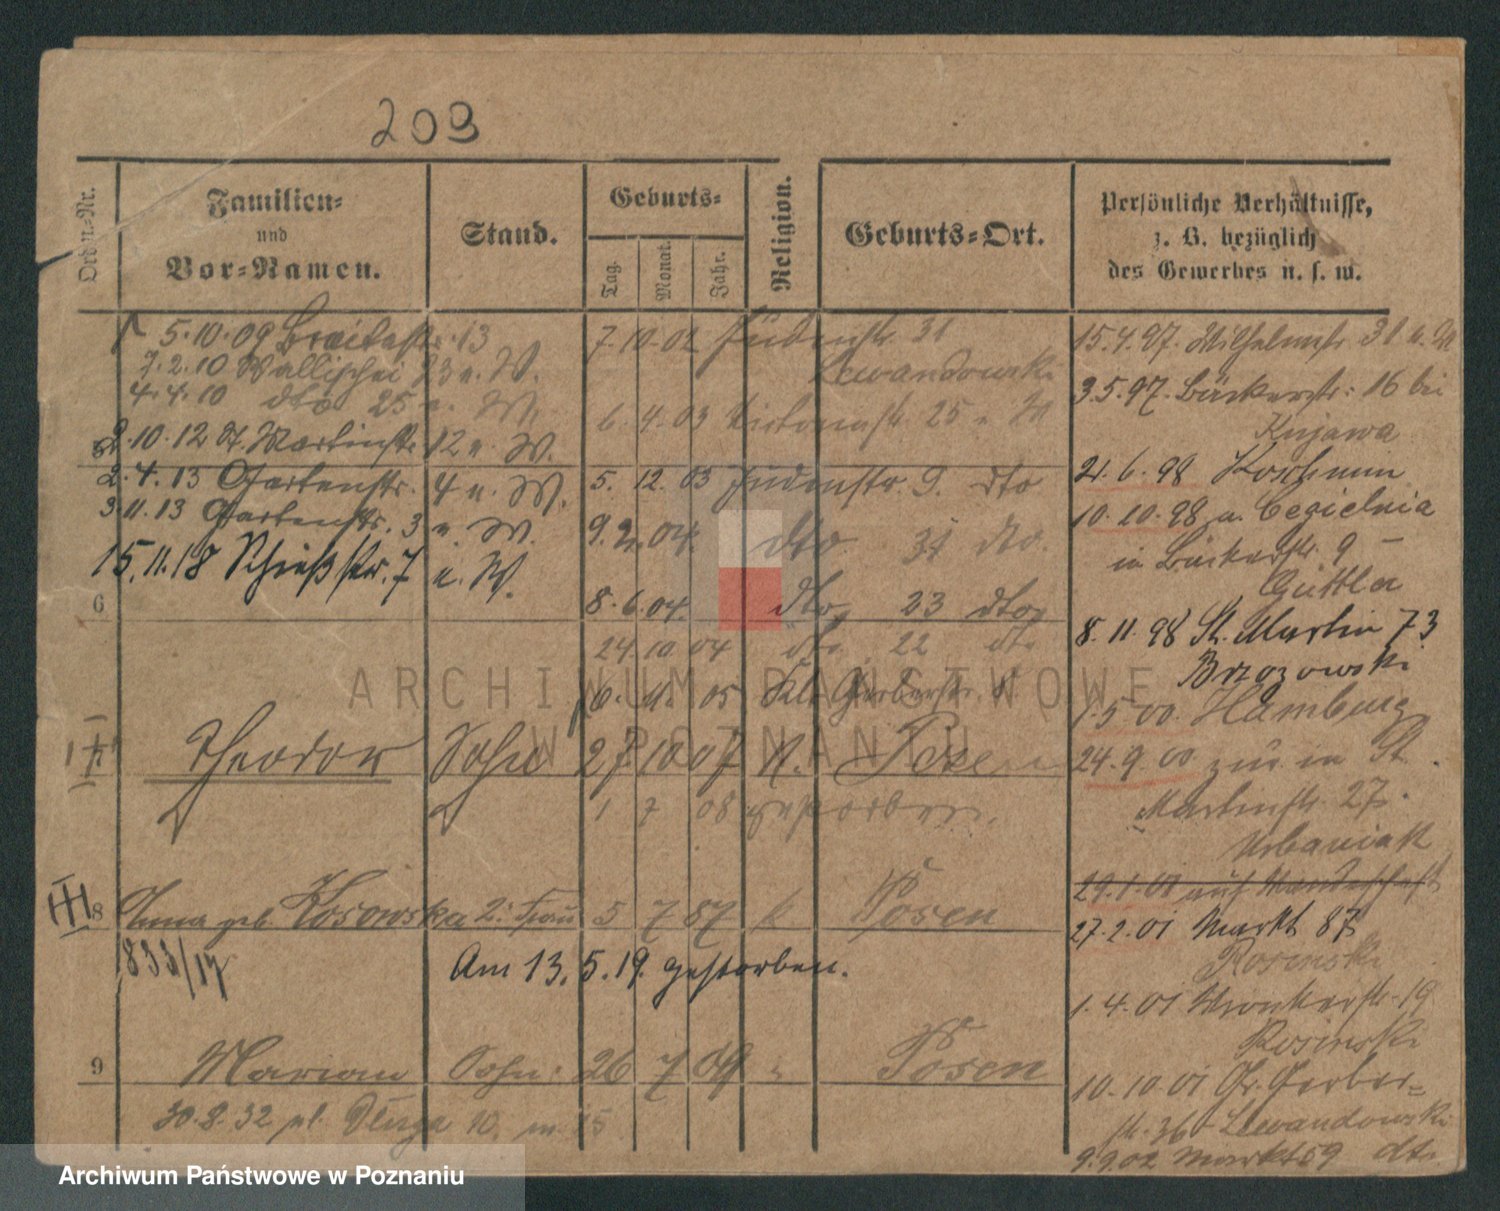 209
Ordn.-Nr.
Familien-
und
Vor-Namen.
Stand.
Geburts-
Tag.
Monat.
Jahr.
Religion.
Geburts-Ort.
Persönliche Verhältnisse,
z. B. bezüglich
des Gewerbes u. s. w.
5.10.09 Breitestr. 13
7.2.10 Wallischei 23 u. W.
4.4.10 dto 25 u. W.
2.10.12 St. Martinstr. 12 u. W.
2.4.13 Gartenstr. 4 u. W.
3.11.13 Gartenstr. 3 u. W.
15.11.18 Schießstr. 7 u. W.
6
7.10.02 Judenstr. 31
Lewandowski
6.4.03 25 u. W
5.12.03 Judenstr. 9. dto
9.2.04. dto. 31 dto.
8.6.04. dto, 23 dto,
24.10.04 dto. 22 dto
05 Kl. Gerberstr. 8
Theodor Sohn 27 10 07 K. Posen
1 7 08 gestorben.
8 Anna geb. Kosowska 2. Frau 5 7 87 k Posen
833/14
Am 13.5.19. gestorben.
9 Marian Sohn 26 7 09 " Posen
30.8.32 pl. Długa 10 m 15
15.4.97. Wilhelmstr. 31 u. W
3.5.97. Bäckerstr: 16 bei
Kujawa
21.6.98 Koschmin
10.10.98 a. Cegielnia
in Bäckerstr. 9 –
Güttler
8.11.98 St. Martin 73
Brzozowski
1.5.00. Hamburg
24.9.00 zur. in St.
Martinstr. 27.
Urbaniak
29.1.01 auf Wanderschaft
27.2.01 Markt 87
Rosinski
1.4.01 Wronkerstr. 19
Rosinski
10.10.01 Gr. Gerber-
str. 36 Lewandowski
9.9.02 Markt 59 dto.
ARCHIWUM PAŃSTWOWE
W POZNANIU
Archiwum Państwowe w Poznaniu